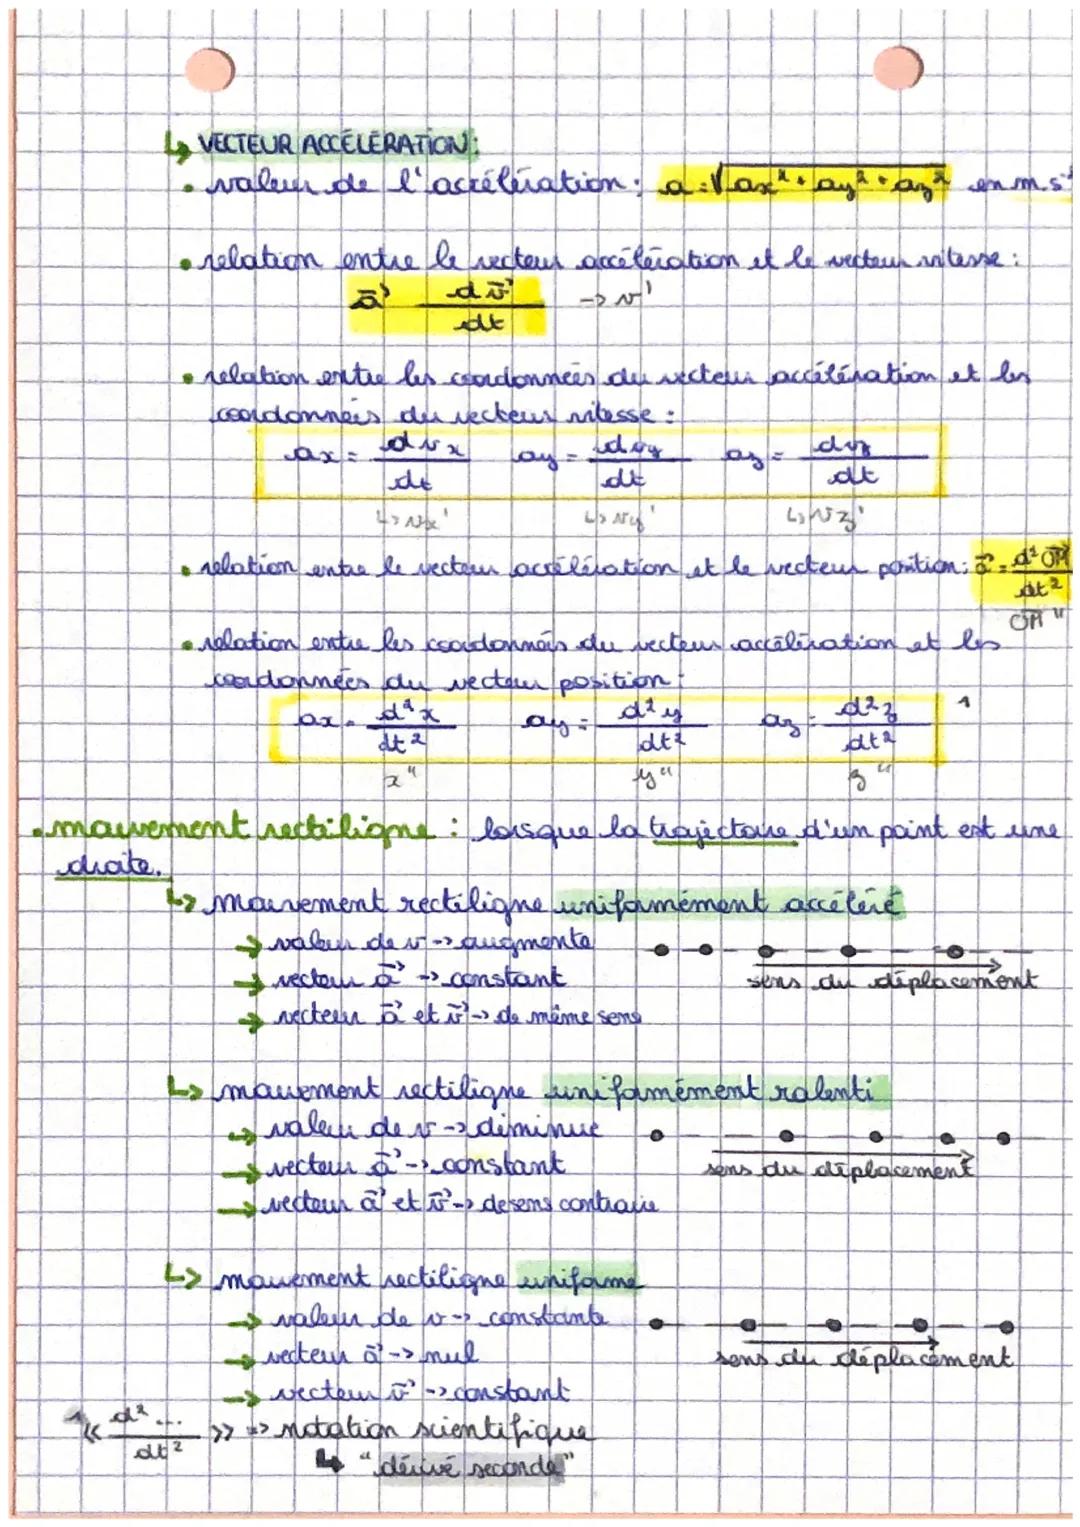 ↳ VECTEUR ACCÉLÉRATION:
• valeur de l'accélération : a = √ax² + ay² + az² en m.s⁻²
• relation entre le vecteur accélération et le vecteur vitesse :
a⃗ dv⃗/dt -> v'
• relation entre les coordonnées du vecteur accélération et les
coordonnées du vecteur vitesse :
ax = dvx/dt ay = dvy/dt az = dvz/dt
↳ vx' ↳ vy' ↳ vz'
• relation entre le vecteur accélération et le vecteur position : a⃗ = d²OM⃗/dt²
OM"
• relation entre les coordonnées du vecteur accélération et les
coordonnées du vecteur position :
ax = d²x/dt² ay = d²y/dt² az = d²z/dt² 1
x" y" z"
• mouvement rectiligne : lorsque la trajectoire d'un point est une
droite.
↳ mouvement rectiligne uniformément accéléré
→ valeur de v -> augmente
→ vecteur a⃗ -> constant
sens du déplacement
→ vecteur a⃗ et v⃗ -> de même sens
↳ mouvement rectiligne uniformément ralenti
→ valeur de v -> diminue
→ vecteur a⃗ -> constant
sens du déplacement
→ vecteur a⃗ et v⃗ -> de sens contraire
↳ mouvement rectiligne uniforme
→ valeur de v -> constante
→ vecteur a⃗ -> nul
sens du déplacement
→ vecteur v⃗ -> constant
1 « d².../dt² » => notation scientifique
↳ "dérivé seconde"